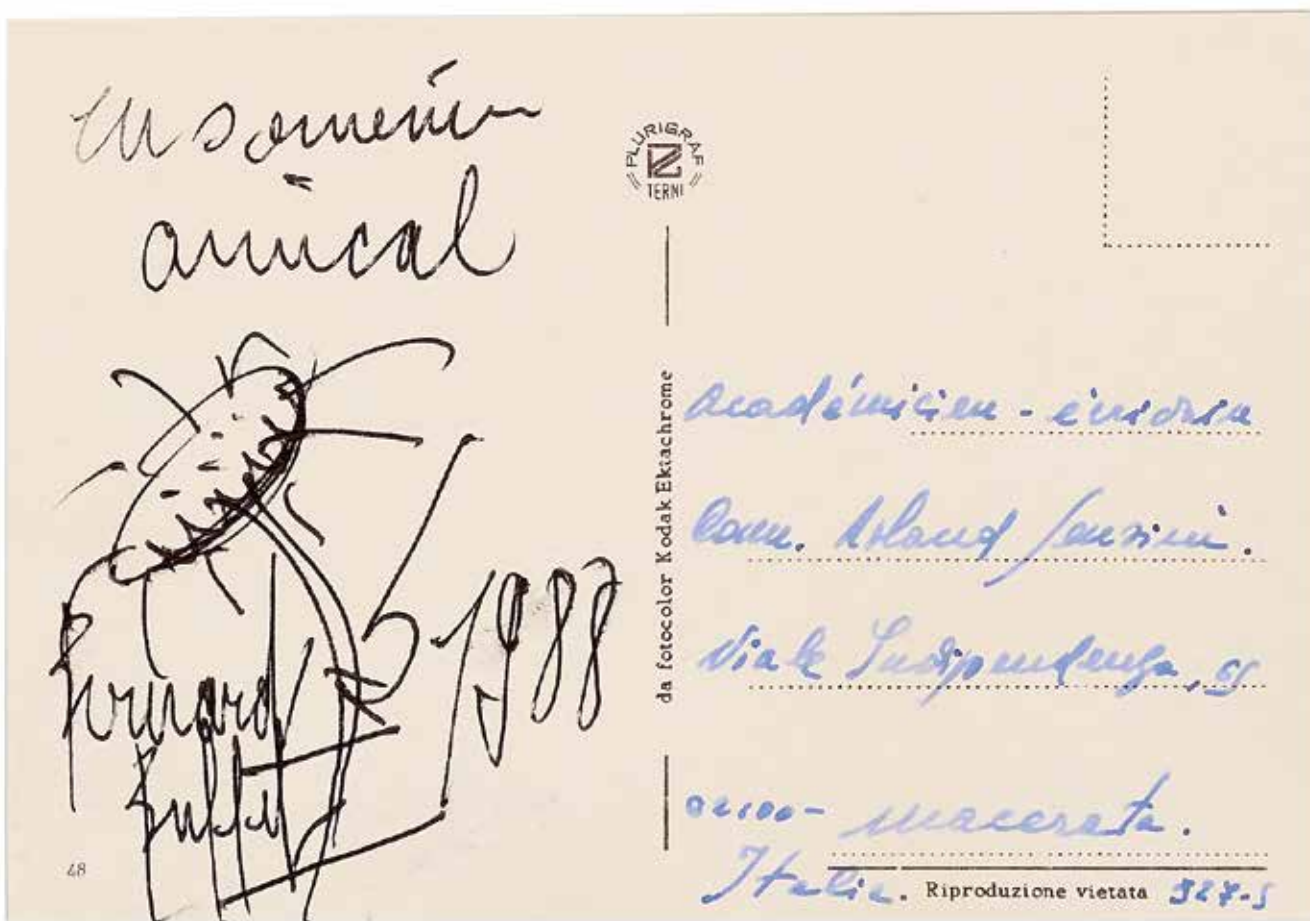 en souvenir
amical
Bernard
Buffet
1988
PLURIGRAF
TERNI
da fotocolor Kodak Ektachrome
académicien -
Comm.
Viale Indipendenza,
macerata.
Italia.
Riproduzione vietata
48